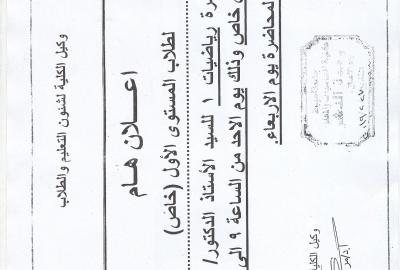 وكيل الكلية لشئون التعليم والطلاب
اعــلان هـام
لطلاب المستوى الأول (خاص)
رياضيات ١ للسيد الأستاذ الدكتور/
خاص وذلك يوم الاحد من الساعة ٩ الى
لمحاضرة يوم الاربعاء.
وكيل
أ.د/